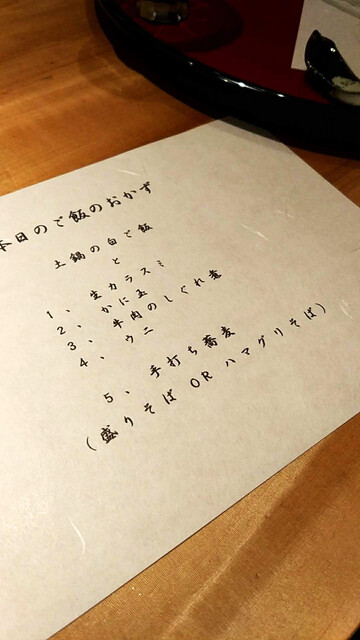 本日のご飯のおかず
土鍋の白ご飯
と
1、生カラスミ
2、かに玉
3、牛肉のしぐれ煮
4、ウニ
5、手打ち蕎麦
(盛りそば OR ハマグリそば)